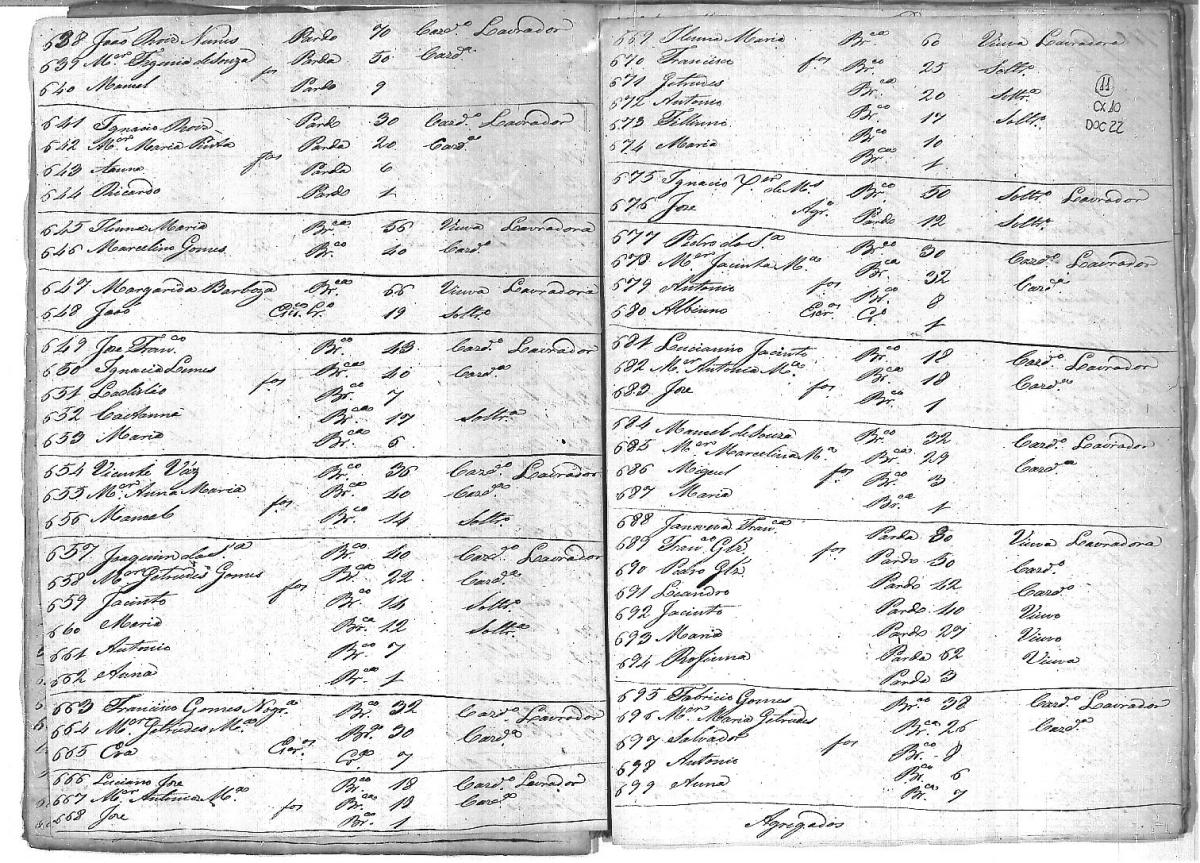 638 João Nunes Pardo 70 Cazdo. Lavrador
639 Mer. de Souza Parda 50 Cazda.
640 Manoel fos Pardo 9
641 Ignacio Pardo 30 Cazdo. Lavrador
642 Mer. Maria Parda 20 Cazda.
643 Anna fos Parda 6
644 Ricardo Pardo 1
645 Maria Brca. 56 Viuva Lavradora
646 Marcelino Gomes Brco. 40 Cazdo.
647 Margarida Barboza Brca. 66 Viuva Lavradora
648 João Cro. 19 Soltro.
649 Joze Franco. Brco. 43 Cazdo. Lavrador
650 Ignacia Lemes Br. 40 Cazda.
651 Ladislao fos Brco. 7
652 Caetanna Brca. 17 Soltra.
653 Maria Brca. 6
654 Vicente Brco. 36 Cazdo. Lavrador
655 Mer. Anna Maria Brca. 40 Cazda.
656 Manoel fos Brco. 14 Soltro.
657 Joaquim da Sa. Brco. 40 Cazdo. Lavrador
658 Mer. Getrudes Gomes Brca. 22 Cazda.
659 Jacinto fos Brco. 14 Soltro.
660 Maria Brca. 12 Soltra.
661 Antonio Brco. 7
662 Anna Brca. 1
663 Francisco Gomes Nogra. Brco. 32 Cazdo. Lavrador
664 Mer. Getrudes Ma. Brca. 30 Cazda.
665 Eva Cra. 7
666 Luciano Joze Brco. 18 Cazdo. Lavrador
667 Mer. Antonia Ma. Brca. 18 Cazda.
668 Joze fos Brco. 1
669 Maria Brca. 60 Viuva Lavradora
670 Francisco fos Brco. 25 Soltro.
671 Getrudes Brca. 20 Soltra.
672 Antonio Brco. 17 Soltro.
673 Brco. 10
674 Maria Brca. 1
11
CX 10
DOC 22
675 Ignacio de Ms. Brco. 50 Soltro. Lavrador
676 Joze Ago. Pardo 12 Soltro.
677 Pedro da Sa. Brco. 30 Cazdo. Lavrador
678 Mer. Jacinta Ma. Brca. 32 Cazda.
679 Antonio fos Br. 8
680 Albino Escr. Cro. 1
681 Lucianno Jacinto Brco. 18 Cazdo. Lavrador
682 Mer. Antonia Ma. Brca. 18 Cazda.
683 Joze fos Brco. 1
684 Manoel de Souza Brco. 32 Cazdo. Lavrador
685 Mer. Marcelina Ma. Brca. 29 Cazda.
686 Miguel fos Brco. 3
687 Maria Brca. 1
688 Franca. Parda 80 Viuva Lavradora
689 Franco. Glz. fos Pardo 50 Cazdo.
690 Pedro Glz. Pardo 42 Cazdo.
691 Leandro Pardo 40 Viuvo
692 Jacinto Pardo 27 Viuvo
693 Maria Parda 62 Viuva
694 Parda 3
695 Fabricio Gomes Brco. 38 Cazdo. Lavrador
696 Mer. Maria Getrudes Brca. 26 Cazda.
697 Salvador fos Brco. 8
698 Antonio Brco. 6
699 Anna Br. 7
Agregados